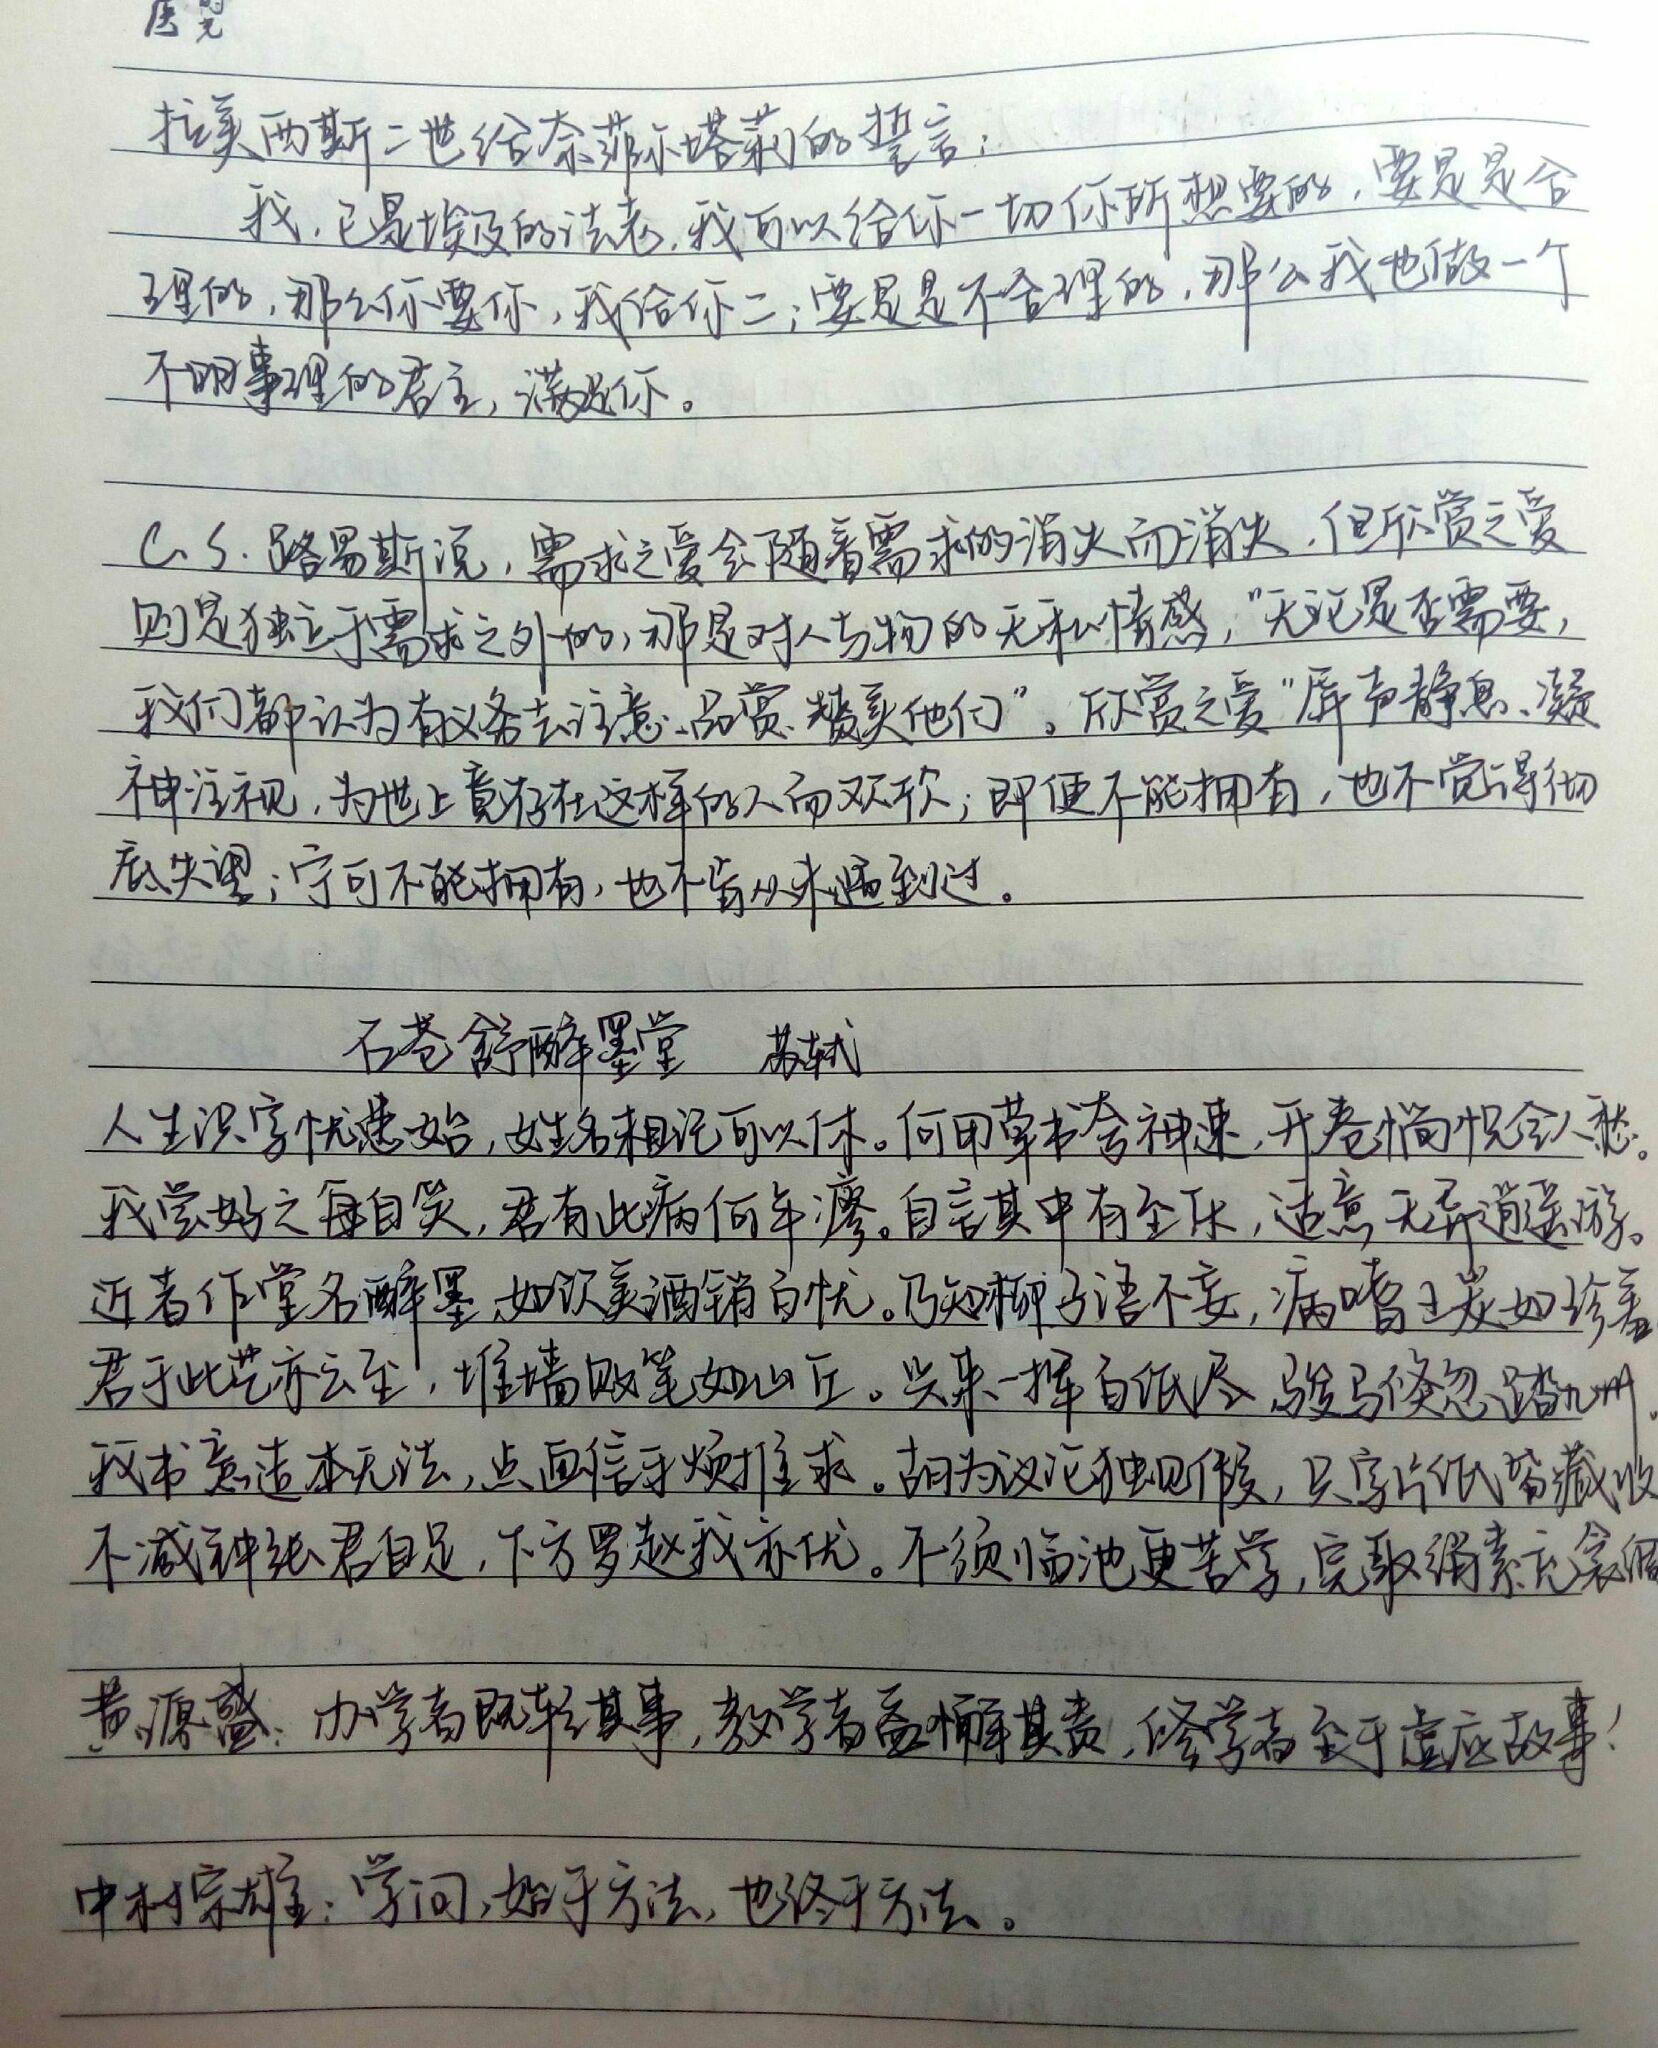 拉美西斯二世给奈菲尔塔莉的誓言：
我，已是埃及的法老，我可以给你一切你所想要的，要是是合
理的，那么你要你，我给你二；要是是不合理的，那么我也做一个
不明事理的君主，满足你。
C.S.路易斯说，需求之爱会随着需求的消失而消失，但欣赏之爱
则是独立于需求之外的，那是对人与物的无私情感，"无论是否需要，
我们都认为有义务去注意、品赏、赞美他们"。欣赏之爱"屏声静息、凝
神注视，为世上竟存在这样的人而欢欣；即便不能拥有，也不觉得彻
底失望；宁可不能拥有，也不肯从未遇到过。
石苍舒醉墨堂 苏轼
人生识字忧患始，姓名粗记可以休。何用草书夸神速，开卷惝恍令人愁。
我尝好之每自笑，君有此病何年瘳。自言其中有至乐，适意无异逍遥游。
近者作堂名醉墨，如饮美酒销百忧。乃知柳子语不妄，病嗜土炭如珍羞
君于此艺亦云至，堆墙败笔如山丘。兴来一挥百纸尽，骏马倏忽踏九州。
我书意造本无法，点画信手烦推求。胡为议论独见假，只字片纸皆藏收
不减钟张君自足，下方罗赵我亦优。不须临池更苦学，完取绢素充衾裯
黄源盛：办学者既轻其事，教学者益懈其责，修学者至于虚应故事！
中村宗雄：学问，始于方法，也终于方法。